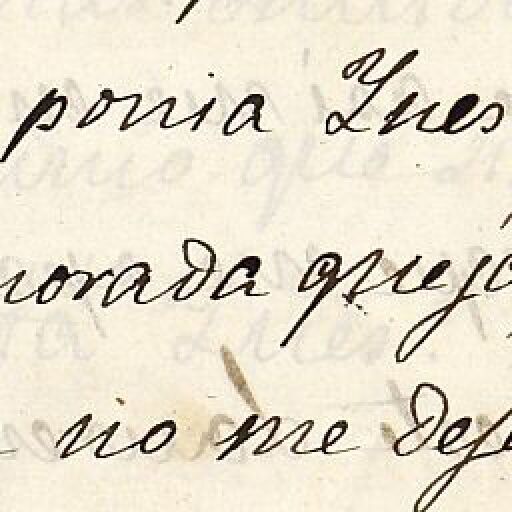 ponia Ynes
norada quejo
no me deje